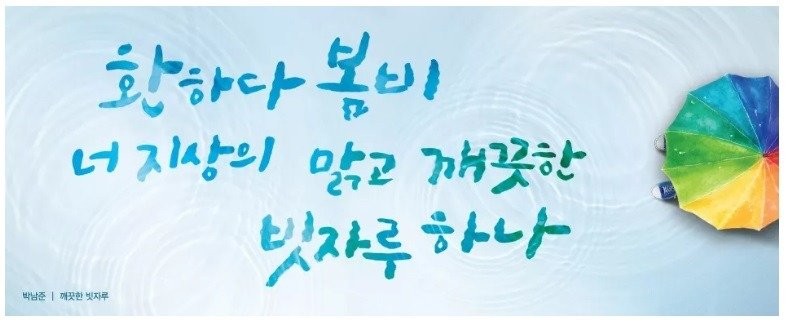 환하다 봄비
너 지상의 맑고 깨끗한
빗자루 하나
박남준 | 깨끗한 빗자루